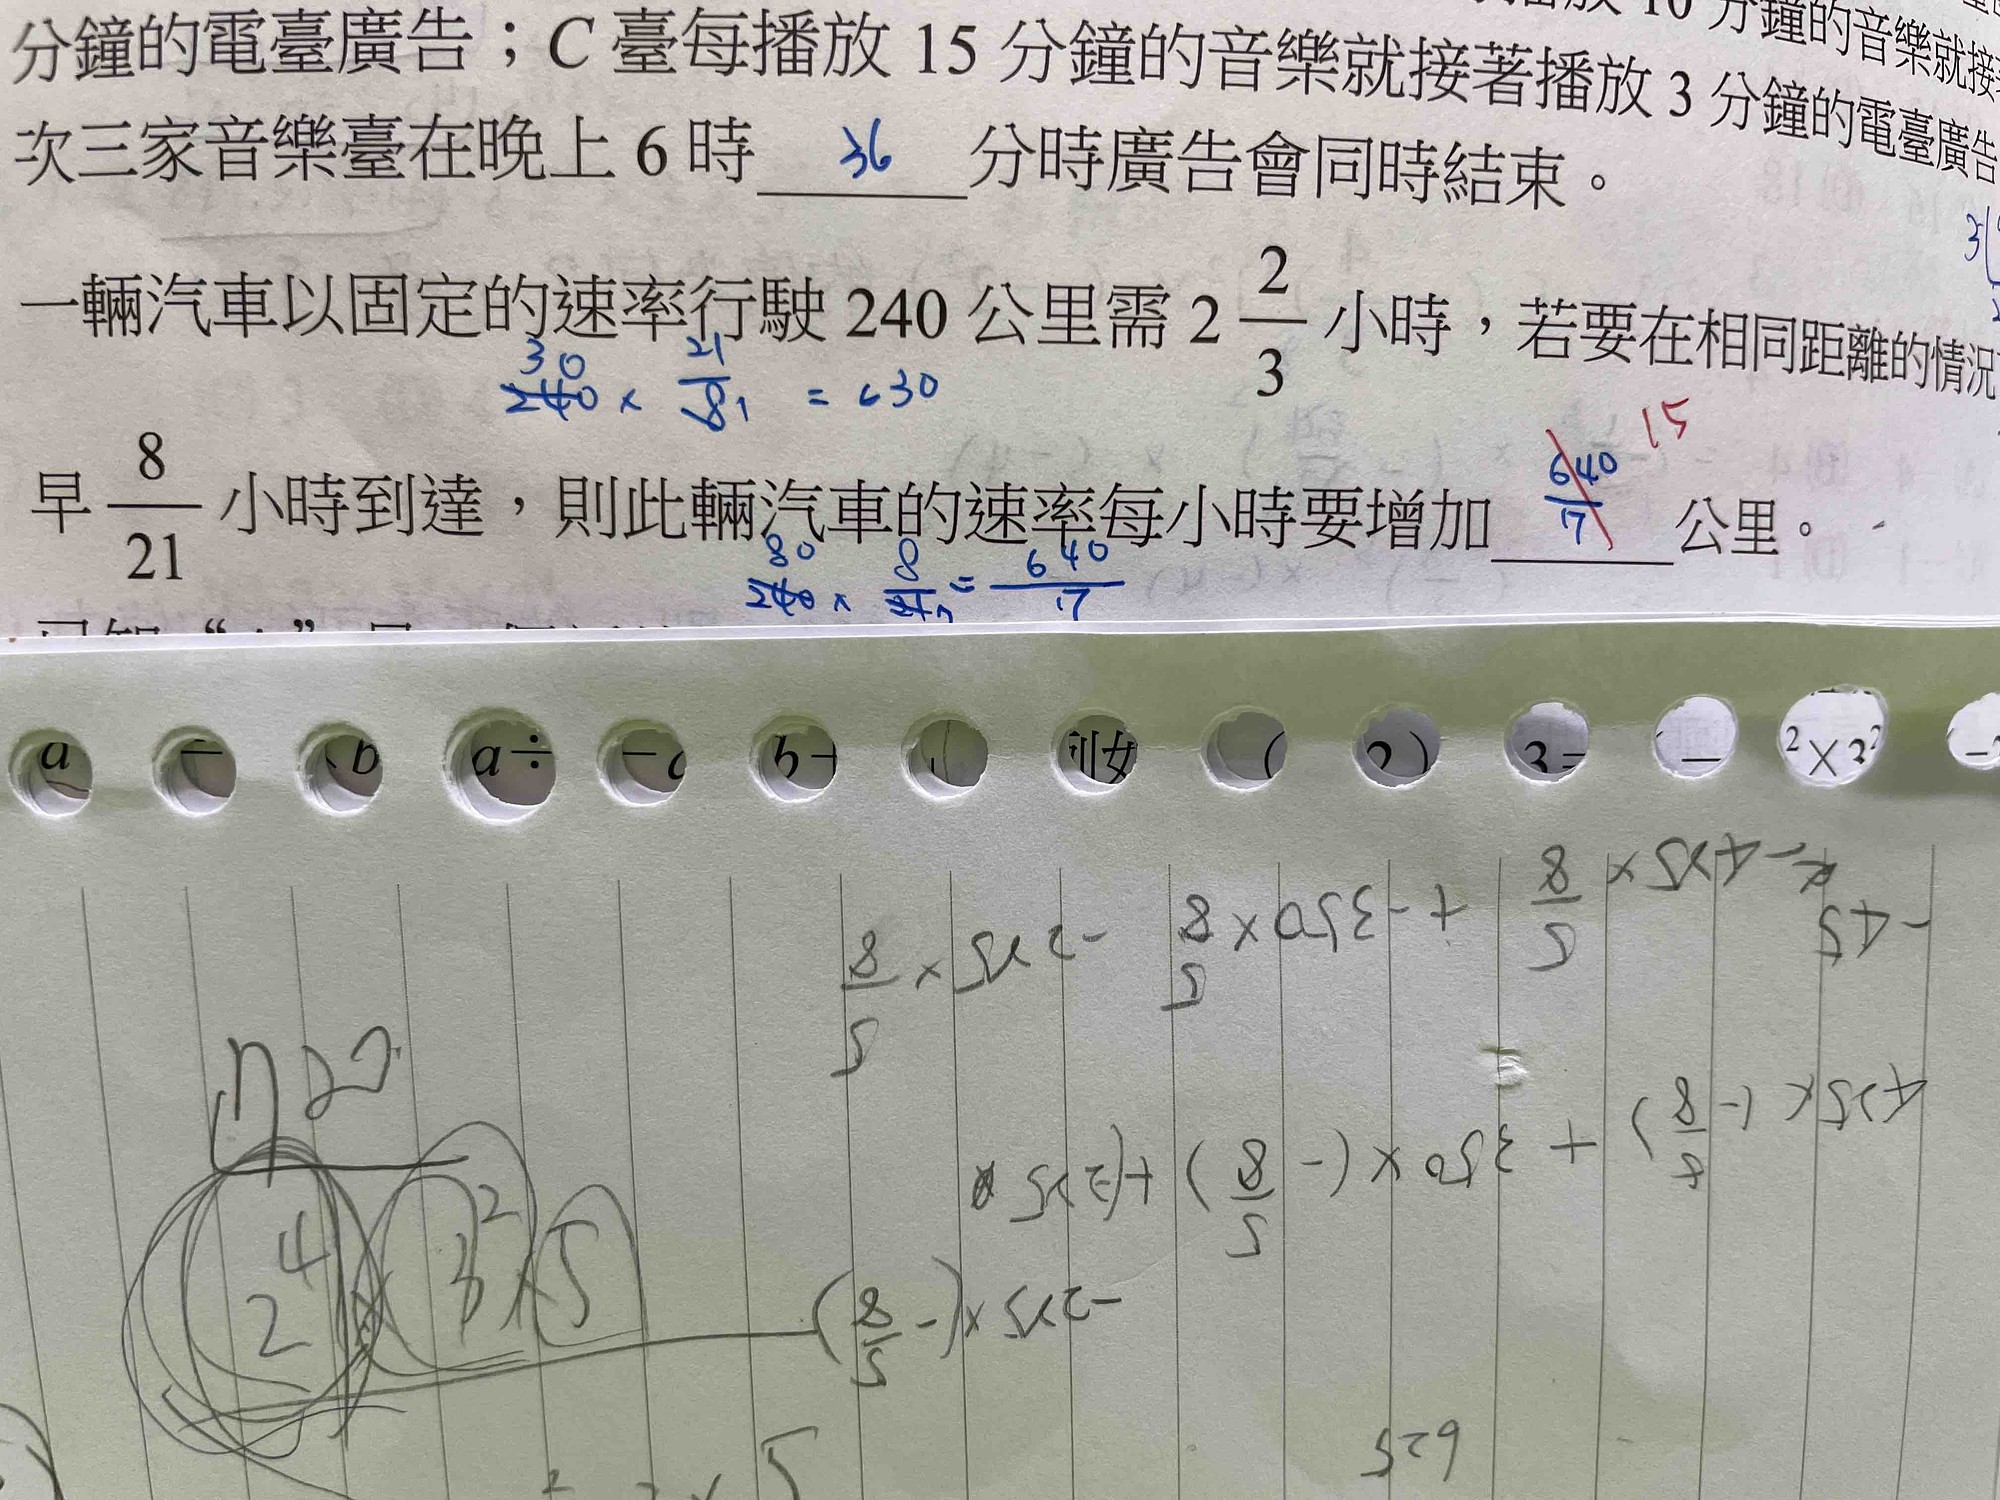 放 10 分鐘的音樂就接
分鐘的電臺廣告；C 臺每播放 15 分鐘的音樂就接著播放 3 分鐘的電臺廣告
次三家音樂臺在晚上 6 時 36 分時廣告會同時結束。
一輛汽車以固定的速率行駛 240 公里需 2 2/3 小時，若要在相同距離的情況
30
240 × 21/8 1 = 630
15
早 8/21 小時到達，則此輛汽車的速率每小時要增加 640/17 公里。
80
240 × 8/217 = 640/17
a − b a ÷ b 2) 3= − ²×3²
-45
-275×5/8
+-350×5/8
425×(-5/8)+350×(-5/8)+(275×
-275×(-5/8)
720
2⁴×3²×5
625
5